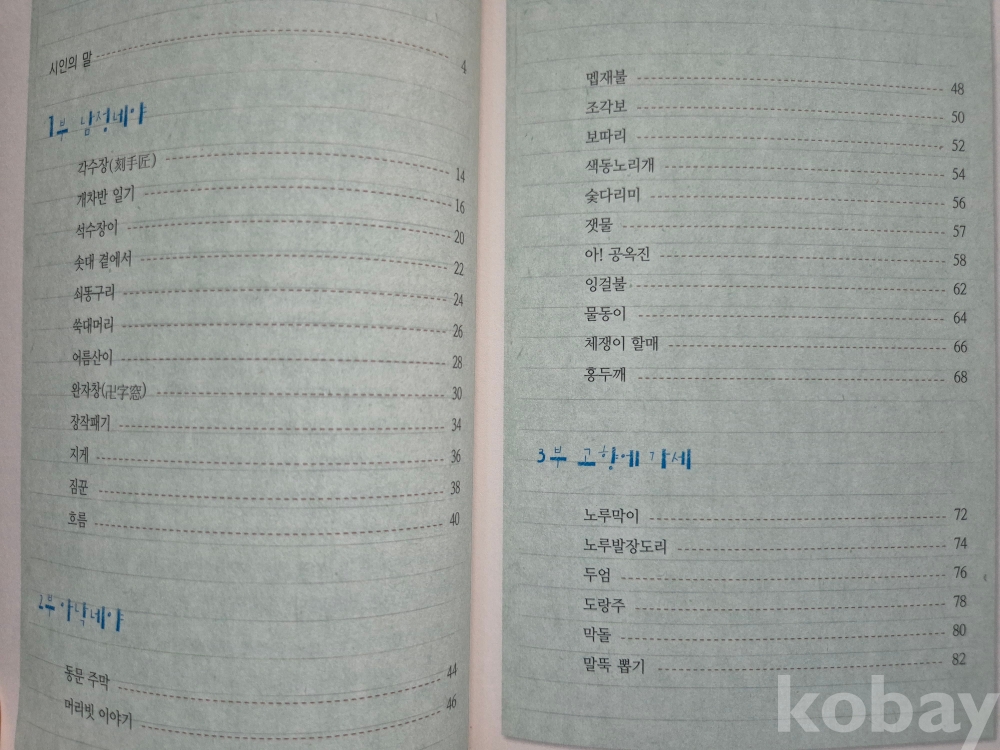 시인의 말 4
1부 남정네야
각수장(刻手匠) 14
개차반 일기 16
석수장이 20
솟대 곁에서 22
쇠똥구리 24
쑥대머리 26
어름산이 28
완자창(卍字窓) 30
장작패기 34
지게 36
짐꾼 38
흐름 40
2부 아낙네야
동문 주막 44
머리빗 이야기 46
멥재불 48
조각보 50
보따리 52
색동노리개 54
숯다리미 56
잿물 57
아! 공옥진 58
잉걸불 62
물동이 64
체쟁이 할매 66
홍두깨 68
3부 고향에 가세
노루막이 72
노루발장도리 74
두엄 76
도랑주 78
막돌 80
말뚝 뽑기 82
kobay